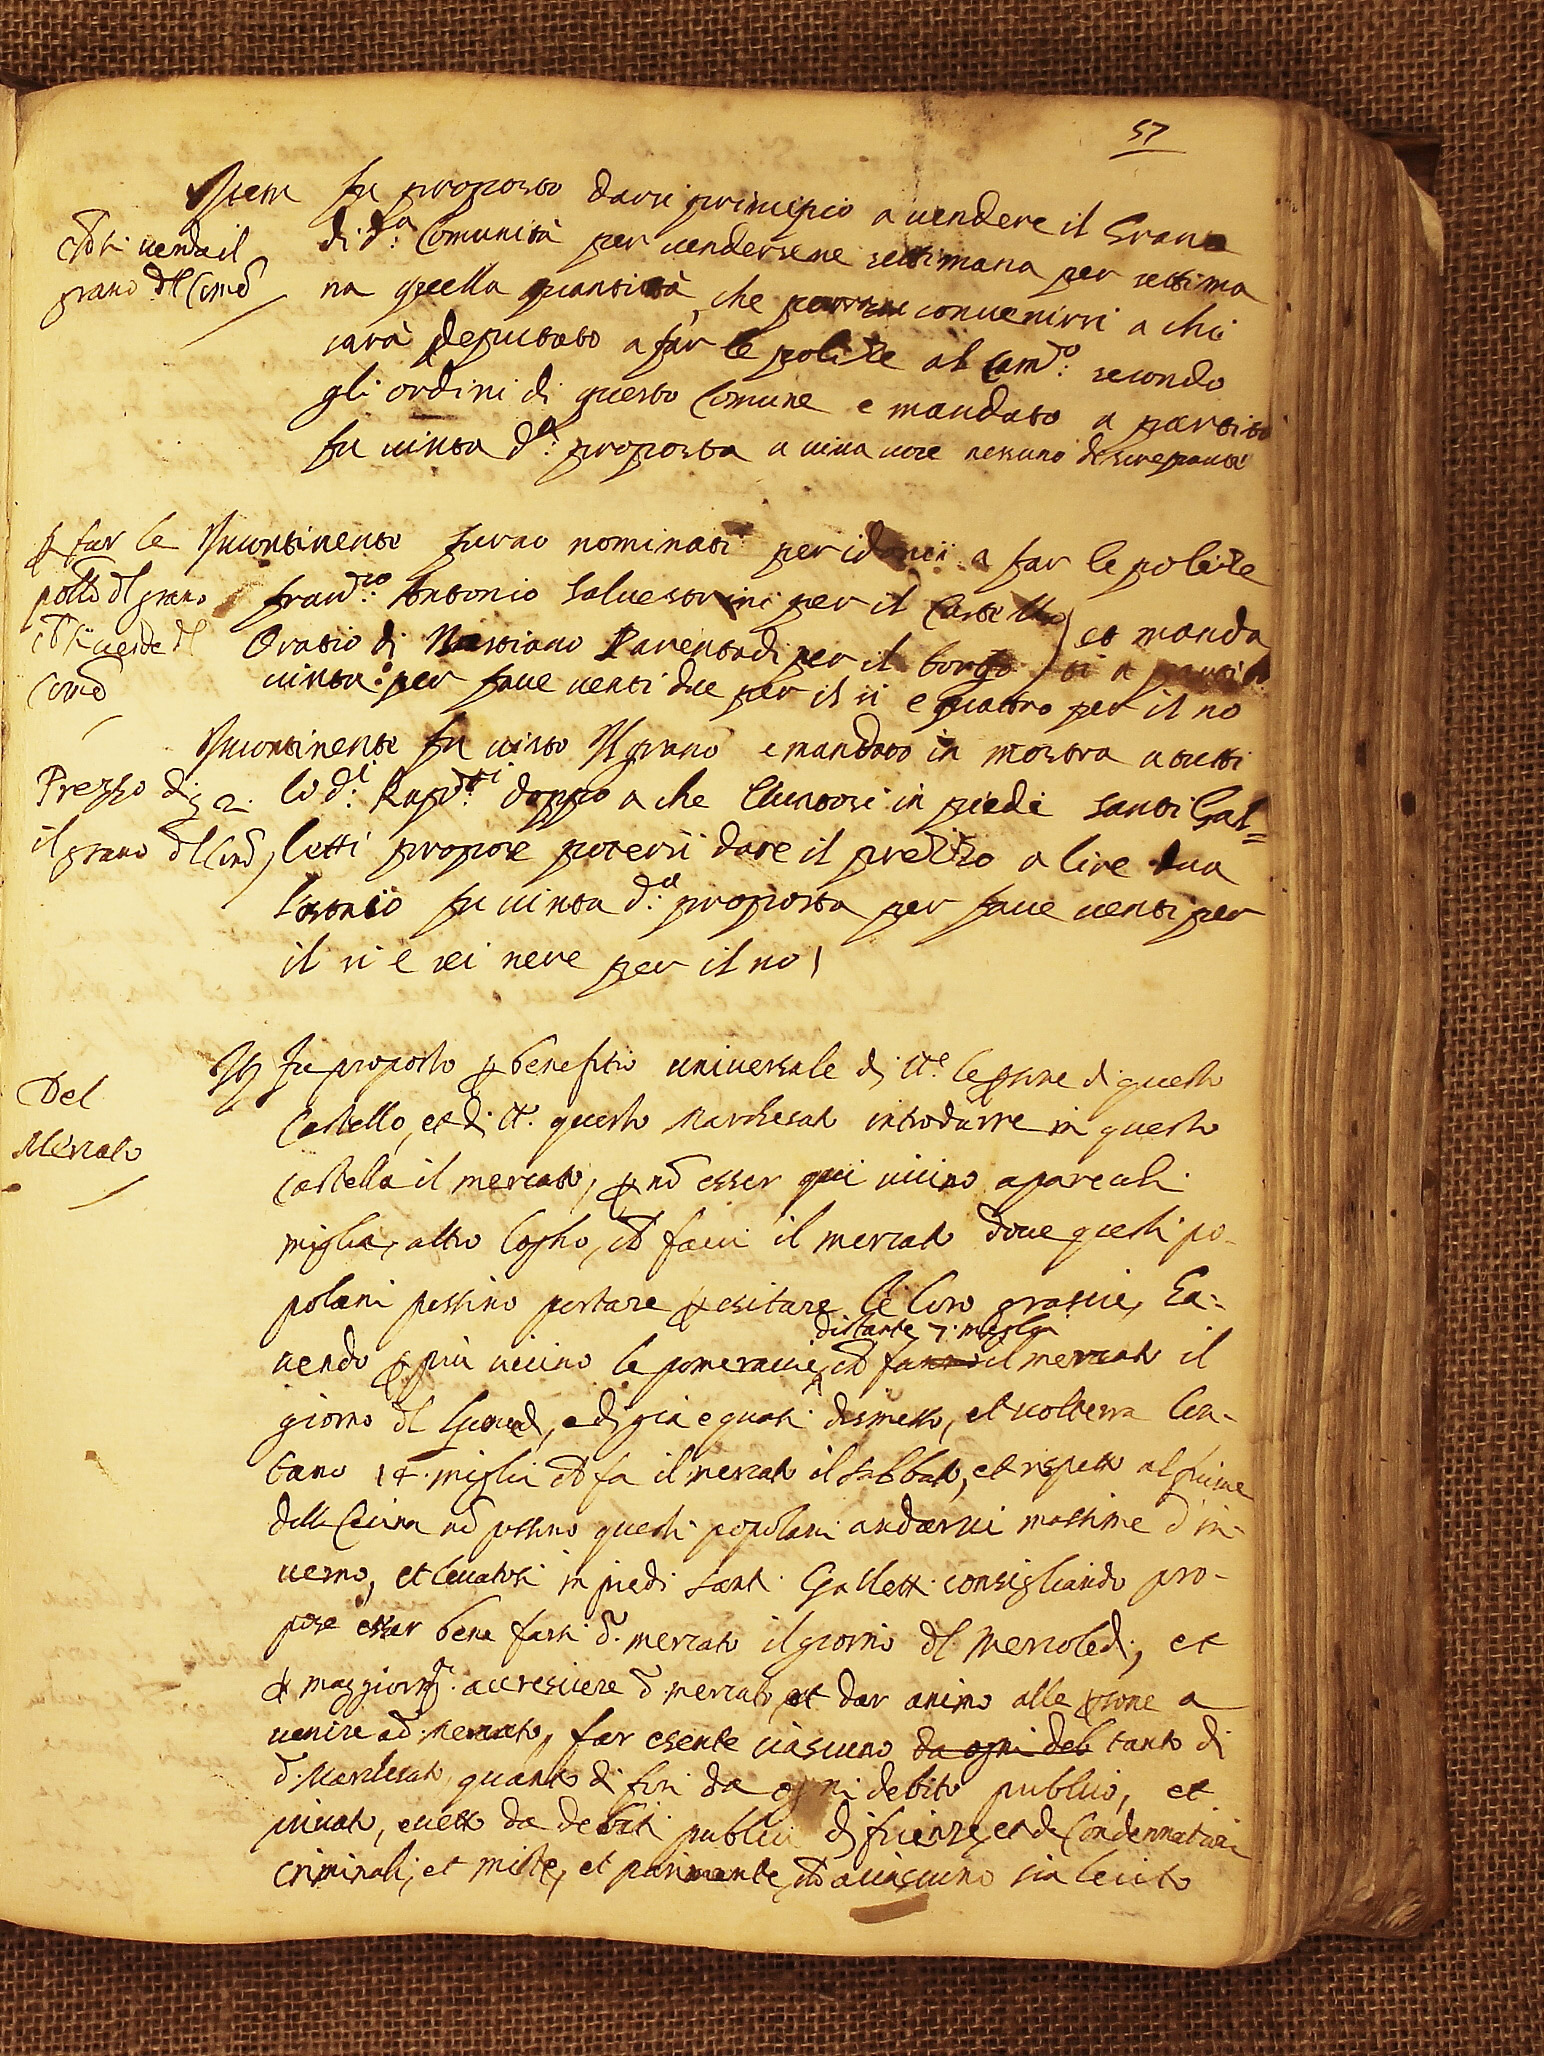 57
Item fu proposto darsi principio a vendere il Grano
di d.a Comunità per vendersene settimana per settima
na quella quantità, che convenirsi a chi
sarà deputato a far le polize al Cam.o secondo
gli ordini di questo Comune e mandato a partito
fu vinta d.a proposta a viva voce nessuno discrepante
che si venda il
grano del
Incontinente furno nominati per idonei a far le polize
Antonio Salvestrini per il Castello
Oratio di Bastiano Parentadi per il borgo
et manda
ti a partito
vinta per fave venti due per il si e quattro per il no
far le
del grano
Incontinente fu visto Il grano e mandato in mostra a tutti
li d.i doppo a che levatosi in piedi Santi Gal=
letti propose potersi dare il prezzo a lire dua
lo staio fu vinta d.a proposta per fave venti per
il si e sei nere per il no
Prezzo di
il grano del
Fu proposto p benefitio universale di tt.e le psone di questo
Castello, et di tt.o questo Marchesato introdurre in questo
Castello il mercato, p nō esser qui vicino a parecchi
miglia, altro logho, chē facci il mercato dove questi po-
polani possino portare p esitare le loro grascie, Ha-
vendo p più vicino le pomerancie, distante 7 miglia chē fanno il mercato il
giorno del e di già è quasi dismesso, et volterra lon-
tano 14 miglia chē fa il mercato il sabbato, et rispetto al fiume
della Cecina nō possino questi popolani andarvi massime d'in-
verno, et levatosi in piedi Santi Galletti consigliando pro-
pose esser bene farsi d.o mercato il giorno del mercoledì, et
p maggiorm.te accrescere d.o mercato et dar animo alle psone a
venire a d.o mercato, far esente ciascuno da ogni deb tanto di
d.o Marchesato, quanto di fori da ogni debito publico, et
privato, ecetto da debiti publici di firenze, et de Condennationi
criminali, et miste, et parimente, chē a ciascuno sia lecito
Del
Mercato